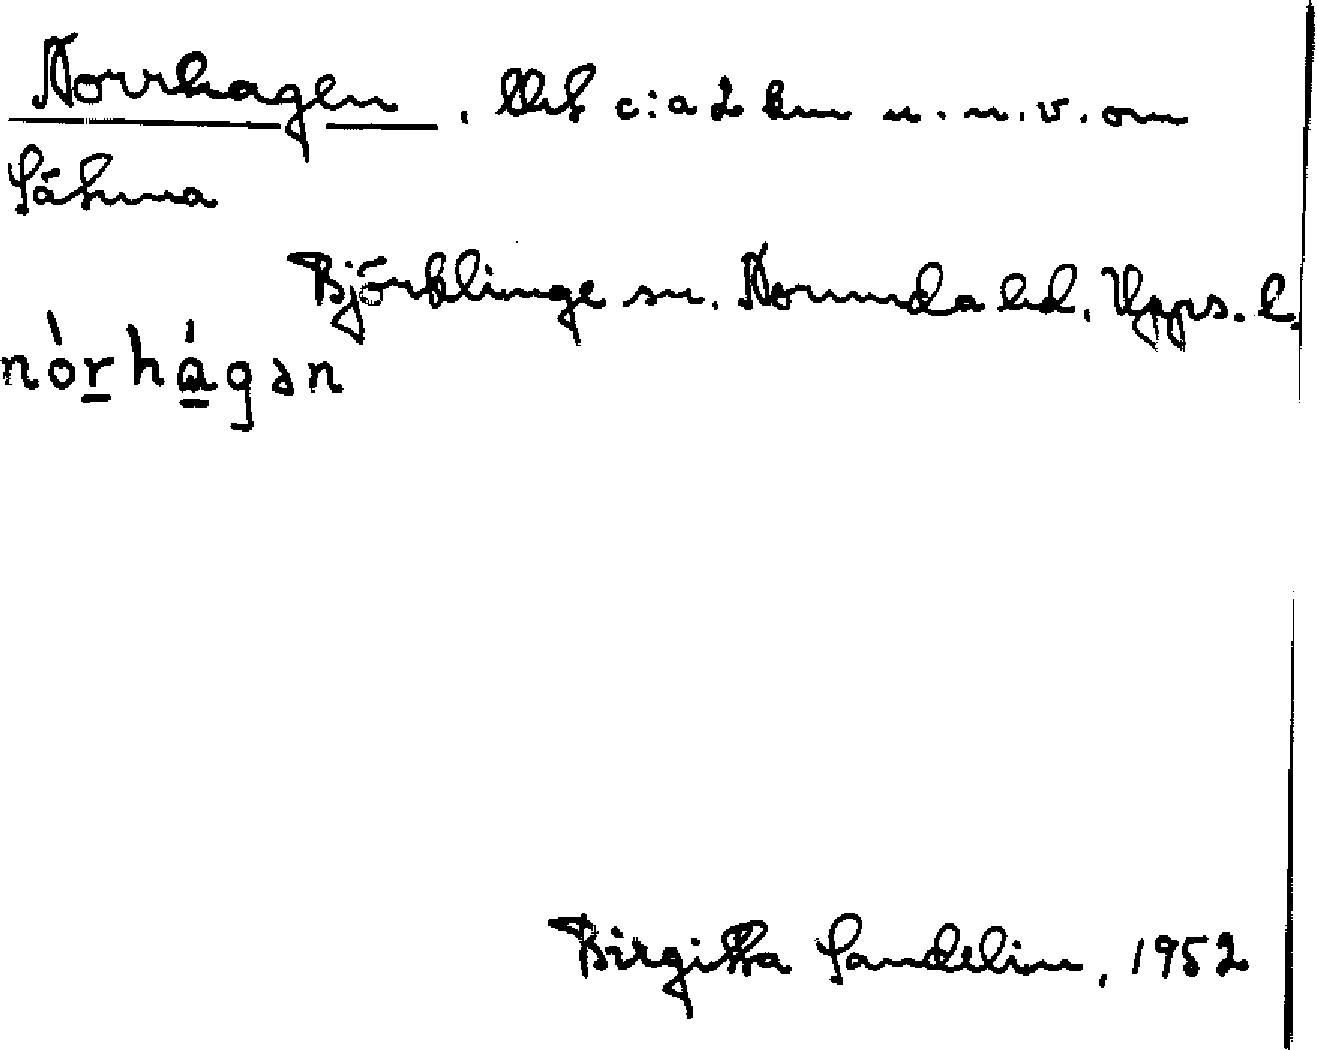 Norrhagen, Utf c:a 2 km n.n.v. om
Sätuna
Björklinge sn. Norunda hd. Upps. l.
nòrhágən
Birgitta Sandelin, 1952